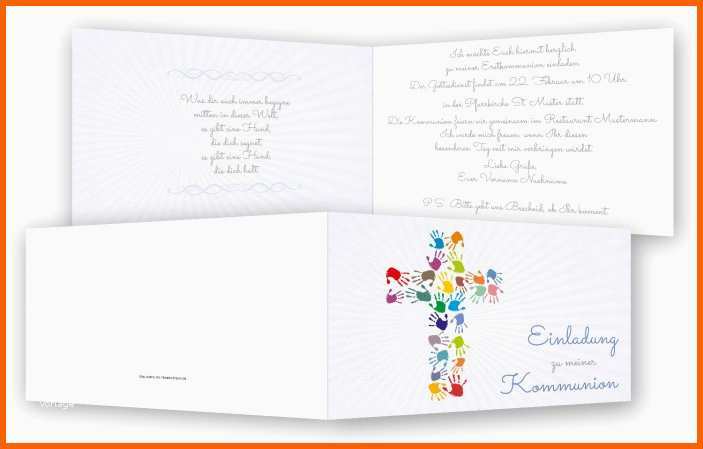 Was dir auch immer begegne
mitten in dieser Welt,
es gibt eine Hand,
die dich segnet,
es gibt eine Hand,
die dich hält.
Ich möchte Euch hiermit herzlich
zu meiner Erstkommunion einladen.
Der Gottesdienst findet am 22. Februar um 10 Uhr
in der Pfarrkirche St. Muster statt.
Die Kommunion feiern wir gemeinsam im Restaurant Mustermann.
Ich würde mich freuen, wenn Ihr diesen
besonderen Tag mit mir verbringen würdet.
Liebe Grüße,
Euer Vorname Nachname
P.S. Bitte gebt uns Bescheid, ob Ihr kommt.
Einladung
zu meiner
Kommunion
Vorlage